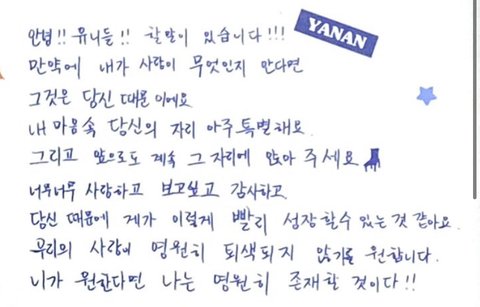 안녕!! 유니들!! 할말이 있습니다!!!
YANAN
만약에 내가 사랑이 무엇인지 안다면
그것은 당신 때문이에요
내 마음속 당신의 자리 아주 특별해요.
그리고 앞으로도 계속 그 자리에 앉아 주세요
너무너무 사랑하고 보고싶고 감사하고
당신 때문에 제가 이렇게 빨리 성장할수 있는것 같아요.
우리의 사랑이 영원히 퇴색되지 않기를 원합니다.
니가 원한다면 나는 영원히 존재할 것이다!!